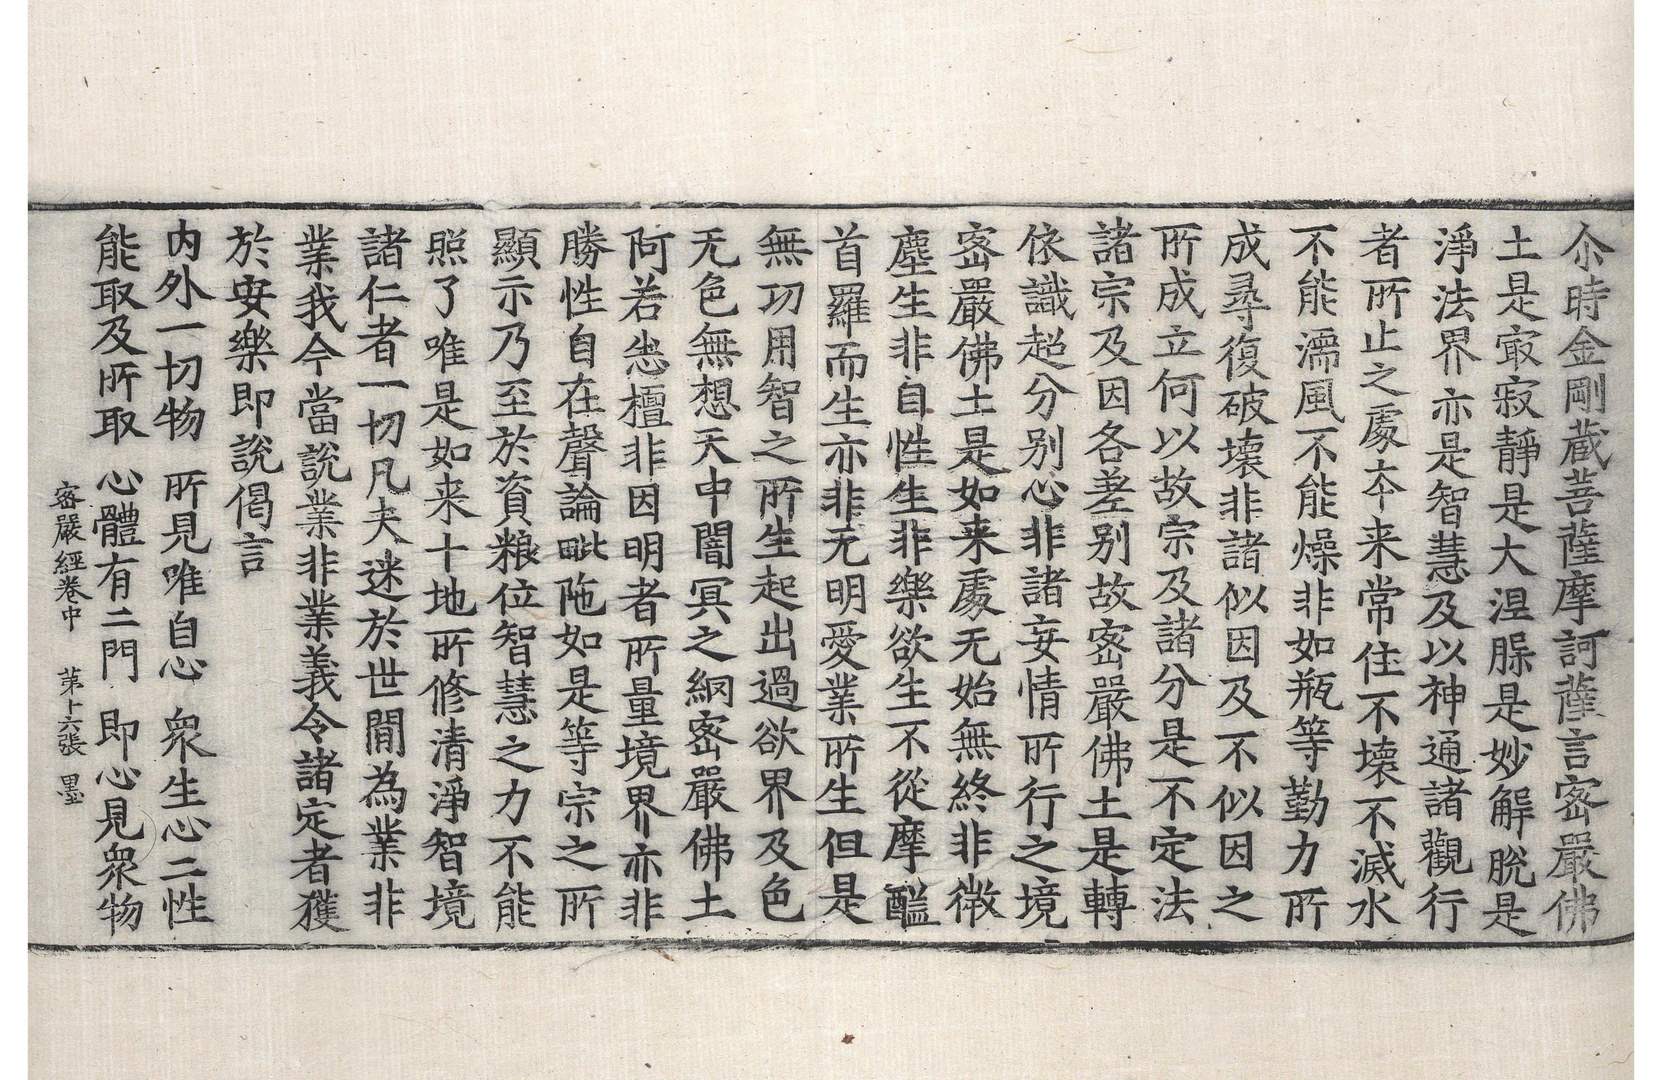 尒時金剛藏菩薩摩訶薩言密嚴佛
土是㝡寂靜是大涅槃是妙解脫是
淨法界亦是智慧及以神通諸觀行
者所止之處夲来常住不壊不滅水
不能濡風不能燥非如瓶等勤力所
成尋復破壊非諸似因及不似因之
所成立何以故宗及諸分是不定法
諸宗及因各差别故密嚴佛土是轉
依識超分别心非諸妄情所行之境
密嚴佛土是如来處无始無終非微
塵生非自性生非樂欲生不從摩醯
首羅而生亦非无明愛業所生但是
無功用智之所生起出過欲界及色
无色無想天中闇冥之網密嚴佛土
阿若悉檀非因明者所量境界亦非
勝性自在聲論毗陁如是等宗之所
顯示乃至於資粮位智慧之力不能
照了唯是如来十地所修清淨智境
諸仁者一切凡夫迷於世閒為業非
業我今當説業非業義令諸定者獲
於安樂即説偈言
内外一切物 所見唯自心 衆生心二性
能取及所取 心體有二門 即心見衆物
密嚴經卷中 苐十六張 墨